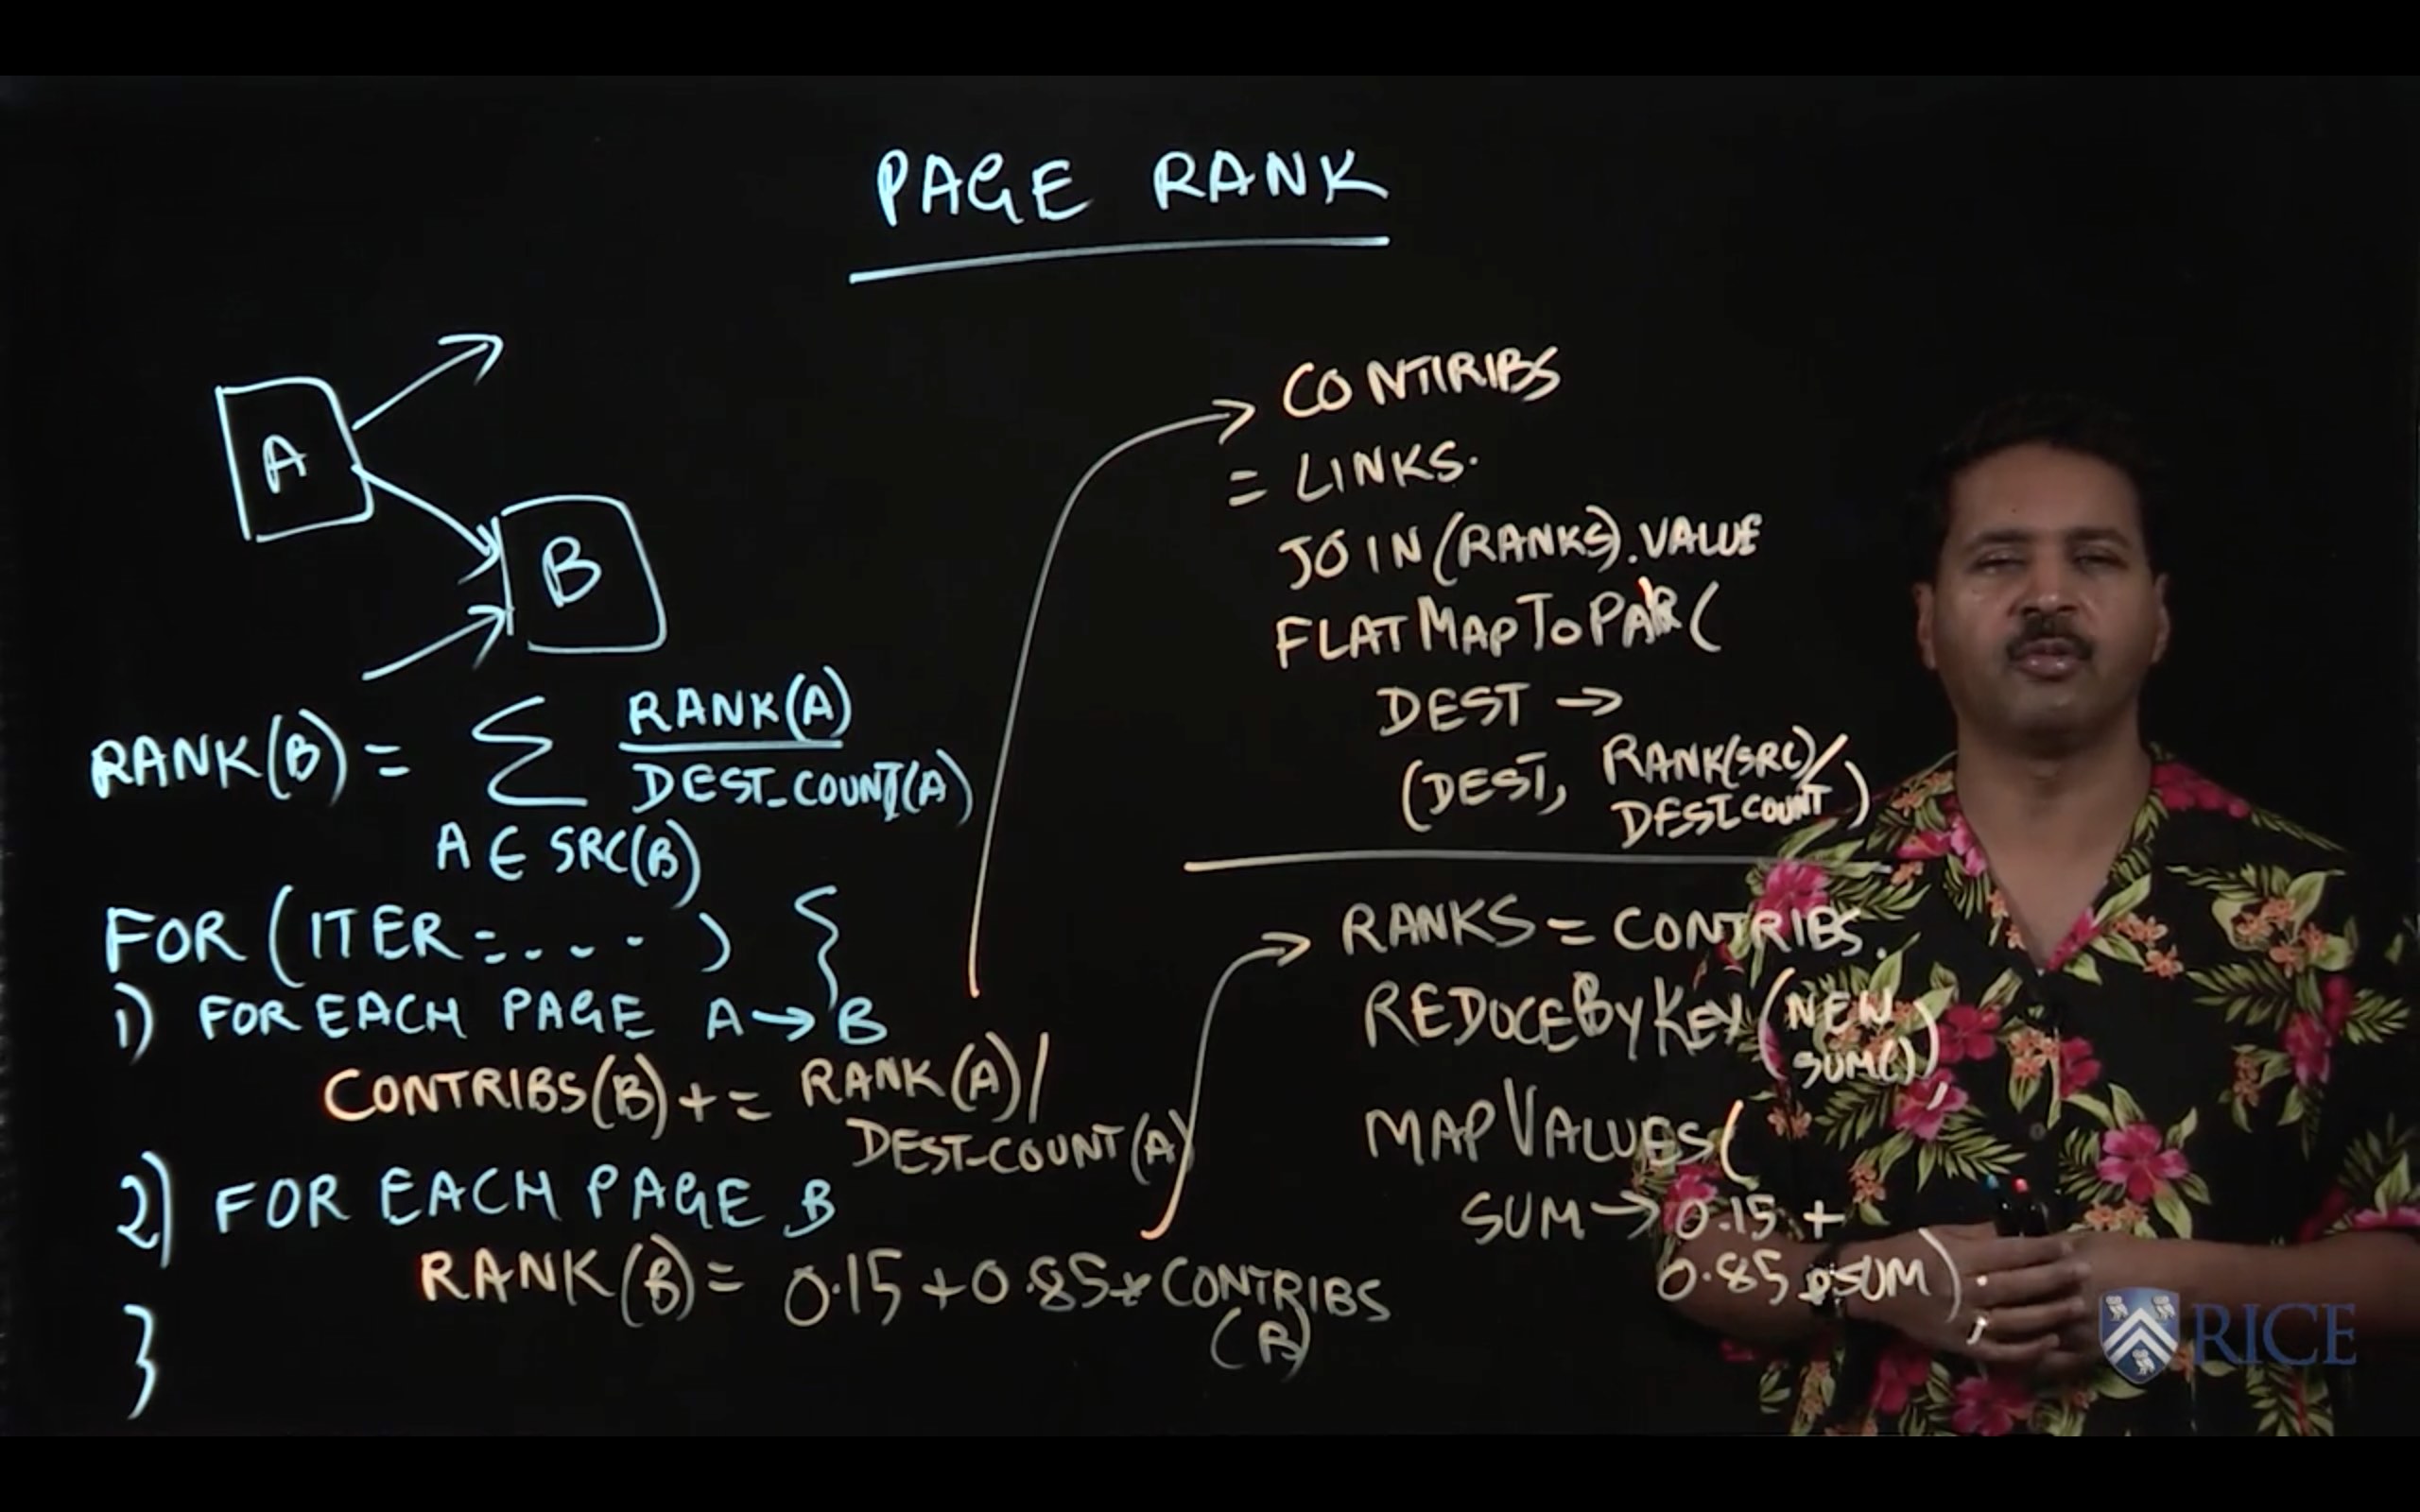 PAGE RANK
A
B
RANK(B) = Σ RANK(A)
DEST_COUNT(A)
A ∈ SRC(B)
FOR (ITER = . . . ) {
1) FOR EACH PAGE A → B
CONTRIBS(B) + = RANK(A)/
DEST_COUNT(A)
2) FOR EACH PAGE B
RANK(B) = 0.15 + 0.85 * CONTRIBS
(B)
}
CONTIRIBS
= LINKS.
JOIN(RANKS).VALUE
FLATMAPTOPAIR(
DEST →
(DEST, RANK(SRC)/
DESTCOUNT)
RANKS = CONTRIBS.
REDUCEBYKEY(NEW
SUM()),
MAPVALUES(
SUM → 0.15 +
0.85 * SUM).
RICE